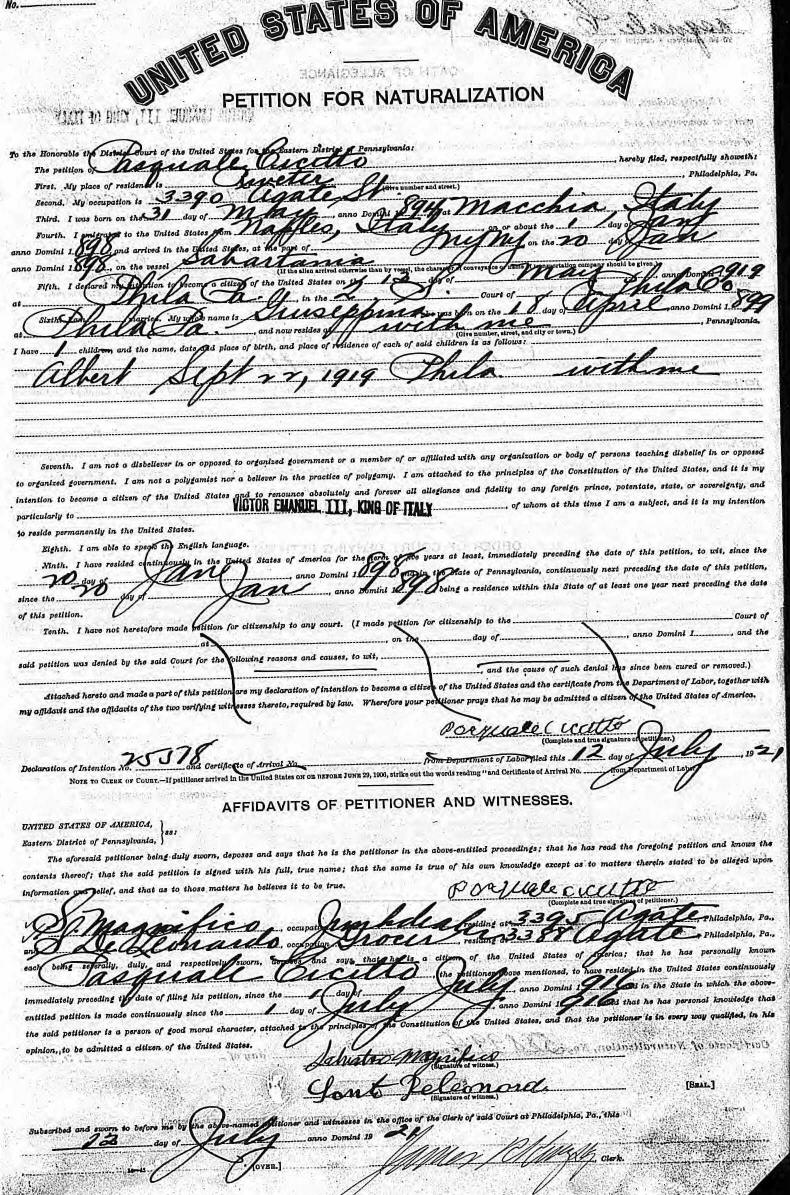 No.
UNITED STATES OF AMERICA
PETITION FOR NATURALIZATION
To the Honorable the District Court of the United States for the Eastern District of Pennsylvania:
The petition of Pasquale Cicitto, hereby filed, respectfully showeth:
First. My place of residence is 3390 Agate St. (Give number and street.) Philadelphia, Pa.
Second. My occupation is
Third. I was born on the 31 day of May, anno Domini 1894 at Macchia, Italy
Fourth. I emigrated to the United States from Naples, Italy on or about the 1 day of Jan
anno Domini 1898 and arrived in the United States, at the port of NY NY, on the 20 day of Jan
anno Domini 1898, on the vessel
(If the alien arrived otherwise than by vessel, the character of conveyance or name of transportation company should be given.)
Fifth. I declared my intention to become a citizen of the United States on the 12 day of May anno Domini 1919
at Phila Pa., in the Court of Phila Co
Sixth. I am married. My wife's name is Giuseppina she was born on the 18 day of April, anno Domini 1899
at Phila Pa., and now resides at with me (Give number, street, and city or town.), Pennsylvania.
I have 1 children, and the name, date and place of birth, and place of residence of each of said children is as follows:
Albert Sept 22, 1919 Phila. with me
Seventh. I am not a disbeliever in or opposed to organized government or a member of or affiliated with any organization or body of persons teaching disbelief in or opposed
to organized government. I am not a polygamist nor a believer in the practice of polygamy. I am attached to the principles of the Constitution of the United States, and it is my
intention to become a citizen of the United States and to renounce absolutely and forever all allegiance and fidelity to any foreign prince, potentate, state, or sovereignty, and
particularly to VICTOR EMANUEL III, KING OF ITALY, of whom at this time I am a subject, and it is my intention
to reside permanently in the United States.
Eighth. I am able to speak the English language.
Ninth. I have resided continuously in the United States of America for the term of five years at least, immediately preceding the date of this petition, to wit, since the
20 day of Jan, anno Domini 1898 and in the State of Pennsylvania, continuously next preceding the date of this petition,
since the 20 day of Jan, anno Domini 1898 being a residence within this State of at least one year next preceding the date
of this petition.
Tenth. I have not heretofore made petition for citizenship to any court. (I made petition for citizenship to the Court of
at , on the day of , anno Domini 1 , and the
said petition was denied by the said Court for the following reasons and causes, to wit,
, and the cause of such denial has since been cured or removed.)
Attached hereto and made a part of this petition are my declaration of intention to become a citizen of the United States and the certificate from the Department of Labor, together with
my affidavit and the affidavits of the two verifying witnesses thereto, required by law. Wherefore your petitioner prays that he may be admitted a citizen of the United States of America.
Pasquale Cicitto
(Complete and true signature of petitioner.)
Declaration of Intention No. 25378 and Certificate of Arrival No. from Department of Labor filed this 12 day of July, 1921
NOTE TO CLERK OF COURT.—If petitioner arrived in the United States ON OR BEFORE JUNE 29, 1906, strike out the words reading "and Certificate of Arrival No. from Department of Labor."
AFFIDAVITS OF PETITIONER AND WITNESSES.
UNITED STATES OF AMERICA,
Eastern District of Pennsylvania, } ss:
The aforesaid petitioner being duly sworn, deposes and says that he is the petitioner in the above-entitled proceedings; that he has read the foregoing petition and knows the
contents thereof; that the said petition is signed with his full, true name; that the same is true of his own knowledge except as to matters therein stated to be alleged upon
information and belief, and that as to those matters he believes it to be true.
Pasquale Cicitto
(Complete and true signature of petitioner.)
S. Magnifico, occupation, residing at 3395 Agate, Philadelphia, Pa.,
and S DeLeonardo, occupation Grocer, residing 3388 Agate, Philadelphia, Pa.,
each being severally, duly, and respectively sworn, deposes and says that he is a citizen of the United States of America; that he has personally known
Pasquale Cicitto, the petitioner above mentioned, to have resided in the United States continuously
immediately preceding the date of filing his petition, since the 1 day of July, anno Domini 1916 and in the State in which the above-
entitled petition is made continuously since the 1 day of July, anno Domini 1916 and that he has personal knowledge that
the said petitioner is a person of good moral character, attached to the principles of the Constitution of the United States, and that the petitioner is in every way qualified, in his
opinion, to be admitted a citizen of the United States.
Salvatore Magnifico
(Signature of witness.)
Sant Deleonardo [SEAL.]
(Signature of witness.)
Subscribed and sworn to before me by the above-named petitioner and witnesses in the office of the Clerk of said Court at Philadelphia, Pa., this
day of July, anno Domini 1921
[OVER.] James Clerk.